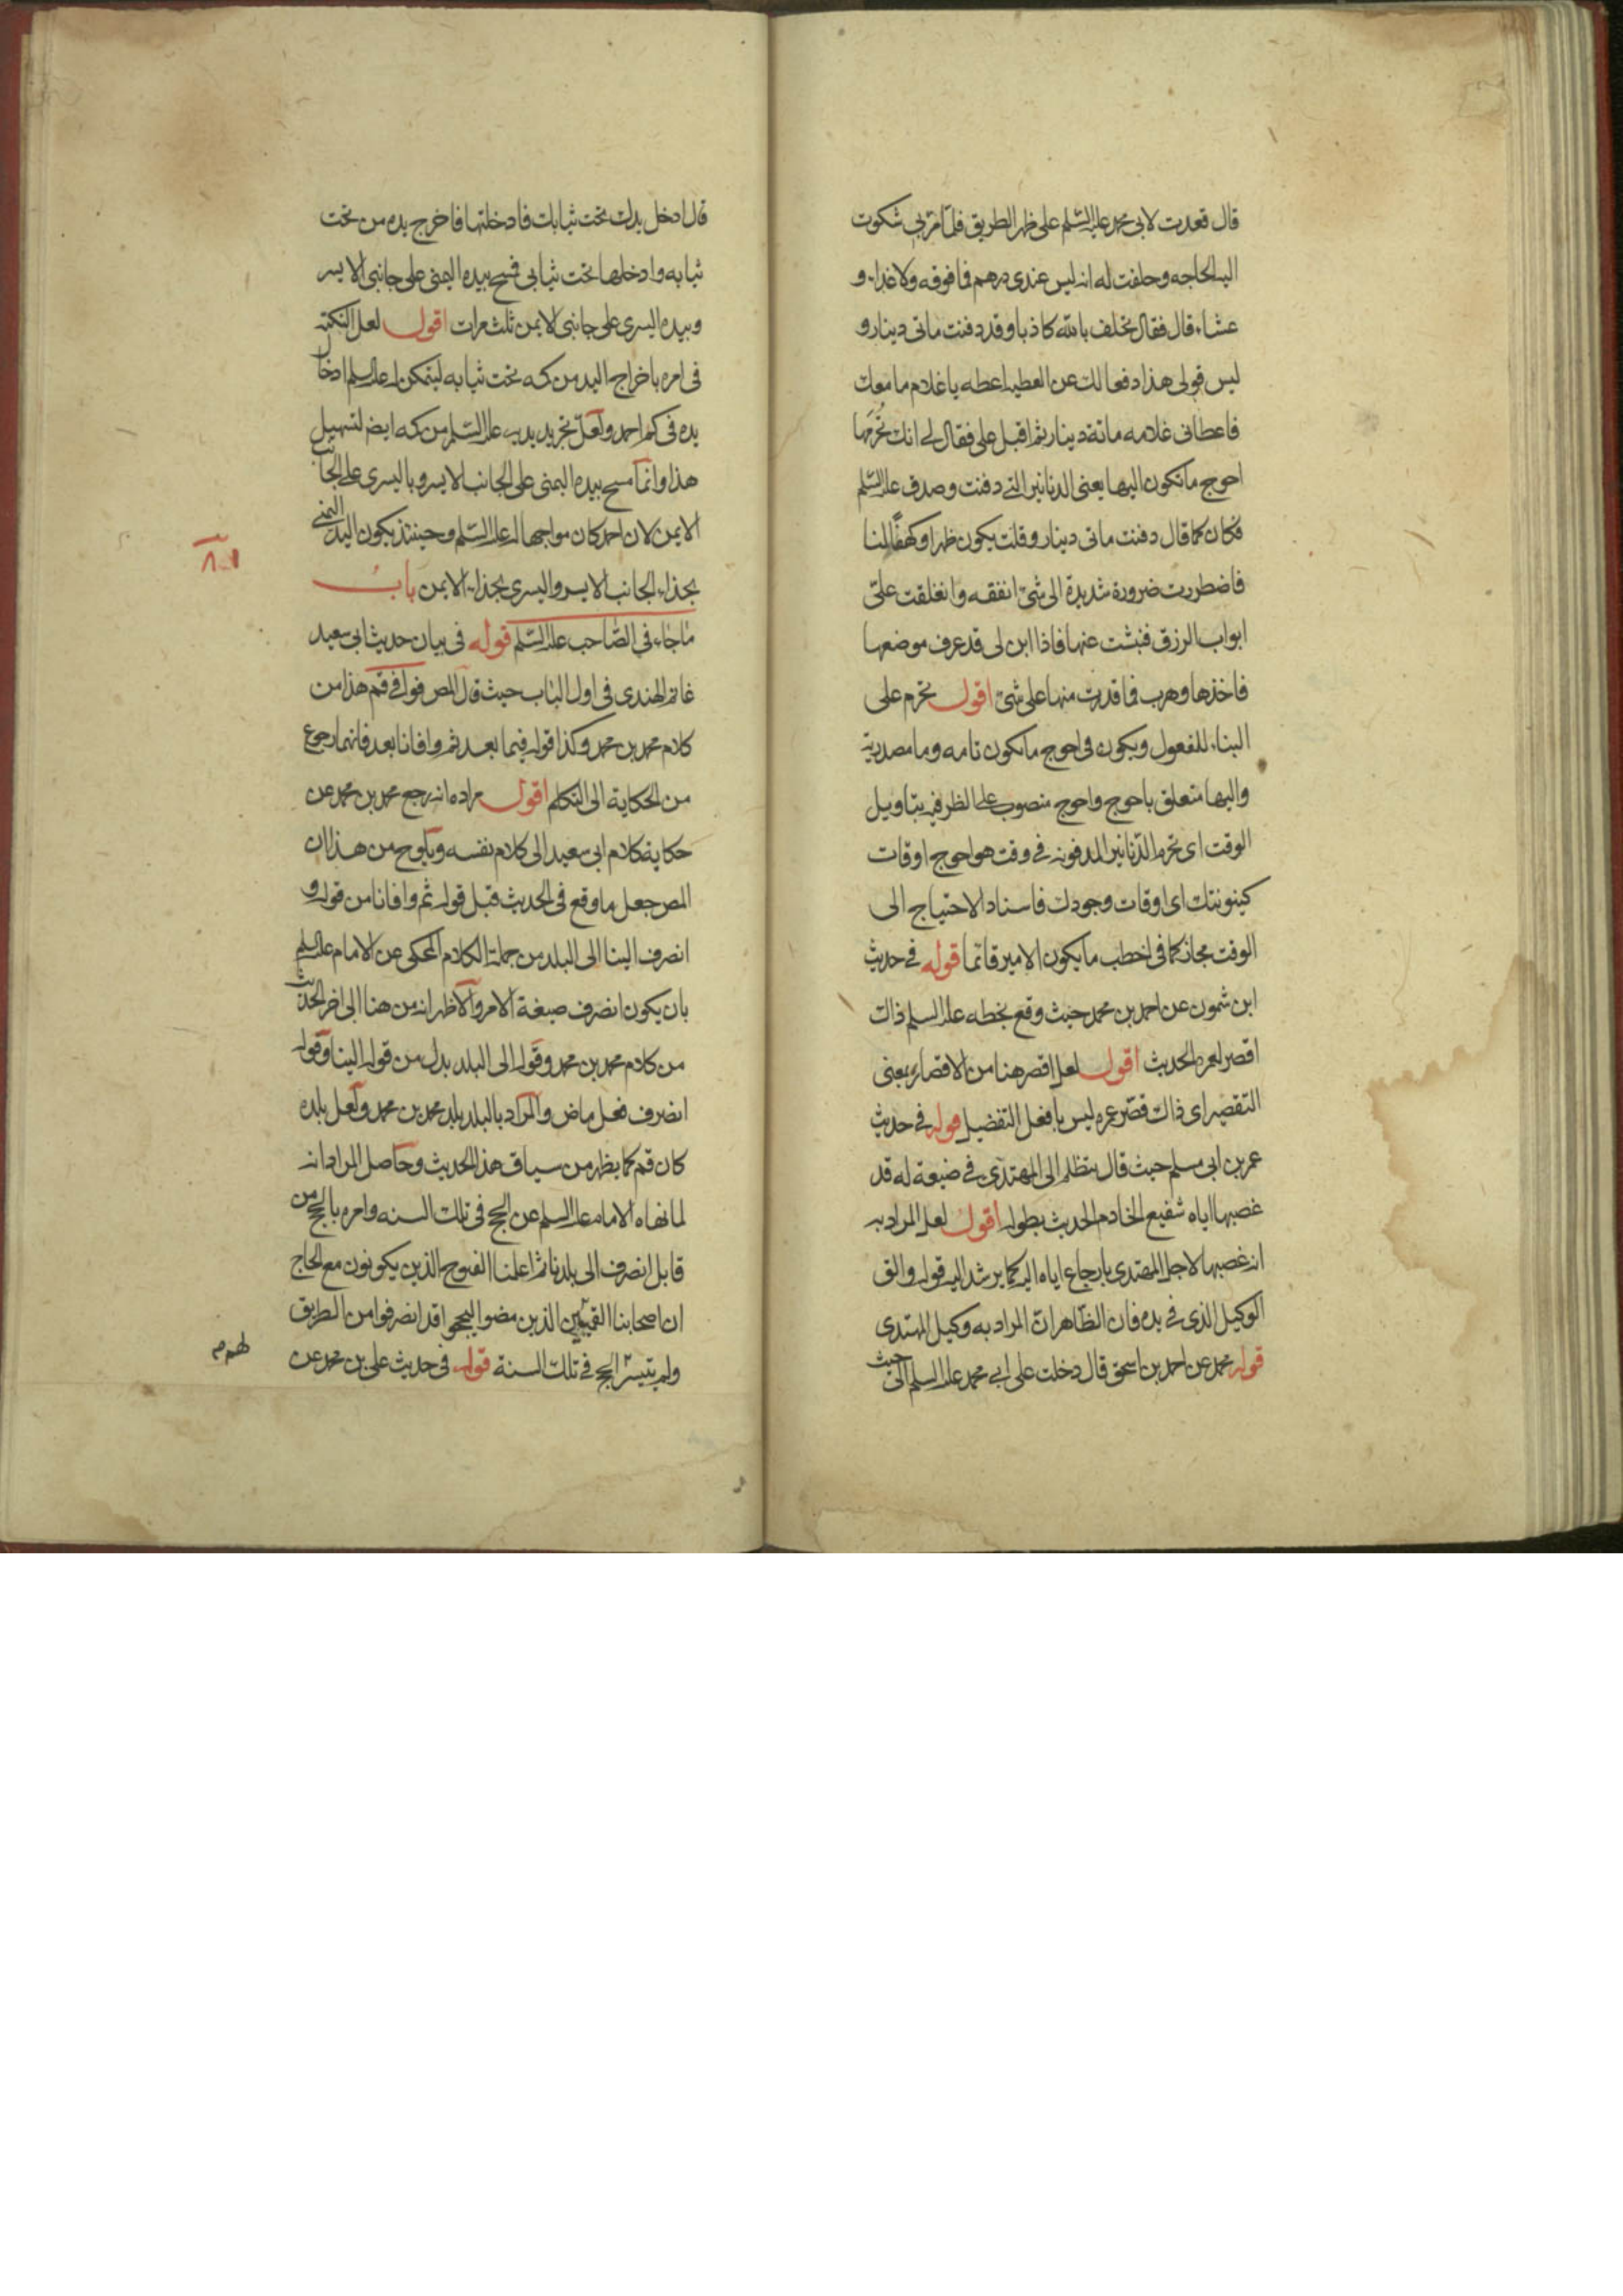 قال قعدت لابى محمد عليه السلم على ظهر الطريق فلما مر بى شكوت
اليه الحاجه وحلفت له انه ليس عندى درهم فما فوقه ولا غداء و
عشاء قال فقال تحلف بالله كاذبا وقد دفنت ماتى دينار و
ليس قولى هذا دفعا لك عن العطيه اعطه يا غلام ما معك
فاعطانى غلامه مائة دينار ثم اقبل على فقال لى انك تحرمها
احوج ما تكون اليها يعنى الدنانير التى دفنت وصدق عليه السلم
فكان كما قال دفنت ماتى دينار وقلت يكون ظهرا وكهفا لنا
فاضطررت ضرورة شديدة الى شئ انفقه وانغلقت على
ابواب الرزق فنبشت عنها فاذا ابن لى قد عرف موضعها
فاخذها وهرب فما قدرت منها على شئ اقول تحرم على
البناء للمفعول ويكون فى احوج ما تكون تامه وما مصدرية
واليها متعلق باحوج واحوج منصوب على الظرفيه بتاويل
الوقت اى تحرم الدنانير المدفونه فى وقت هو احوج اوقات
كينونتك اى اوقات وجودك فاسناد الاحتياج الى
الوقت مجاز كما فى اخطب ما يكون الامير قائما قوله فى حديث
ابن شمون عن احمد بن محمد حيث وقع بخطه عليه السلم ذاك
اقصر لعمره الحديث اقول لعل اقصر هنا من الاقصار بمعنى
التقصير اى ذاك قصر عمره ليس بافعل التفضيل قوله فى حديث
عمر بن ابى مسلم حيث قال يتظلم الى المهتدى فى ضيعة له قد
غصبها اياه شفيع الخادم الحديث بطوله اقول لعل المراد به
انه غصبها لاجل المهتدى بارجاع اياه اليه كما يرشد اليه قوله والق
الوكيل الذى فى يده فان الظاهر ان المراد به وكيل المهتدى
قوله محمد عن احمد بن اسحق قال دخلت على ابى محمد عليه السلم الى حيث
قال ادخل يدك تحت ثيابك فادخلتها فاخرج يده من تحت
ثيابه وادخلها تحت ثيابى فمسح بيده اليمنى على جانبى الايسر
وبيده اليسرى على جانبى الايمن ثلث مرات اقول لعل النكته
فى امره باخراج اليد من كمه تحت ثيابه ليتمكن له عليه السلم ادخال
يده فى كم احمد ولعل تجريد يديه عليه السلم من كمه ايضا لتسهيل
هذا وانما مسح بيده اليمنى على الجانب الايسر وباليسرى على الجانب
الايمن لان احمد كان مواجها له عليه السلم وحينئذ يكون اليد اليمنى
بحذاء الجانب الايسر واليسرى بحذاء الايمن باب
ما جاء فى الصاحب عليه السلم قوله فى بيان حديث ابى سعيد
غانم الهندى فى اول الباب حيث قال المص قوله فى قم هذا من
كلام محمد بن محمد وكذا قوله فيما بعد ثم وافانا بعد فانهما رجوع
من الحكاية الى التكلم اقول مراده انه رجع محمد بن محمد عن
حكاية كلام ابى سعيد الى كلام نفسه ويلوح من هذا ان
المص جعل ما وقع فى الحديث قبل قوله ثم وافانا من قوله و
انصرف الينا الى البلد من جملة الكلام المحكى عن الامام عليه السلم
بان يكون انصرف صيغة الامر والاظهر انه من هنا الى اخر الحديث
من كلام محمد بن محمد وقوله الى البلد بدل من قوله الينا وقوله
انصرف فعل ماض والمراد بالبلد بلد محمد بن محمد ولعل بلده
كان قم كما يظهر من سياق هذا الحديث وحاصل المراد انه
لما نهاه الامام عليه السلم عن الحج فى تلك السنه وامره بالحج من
قابل انصرف الى بلدنا ثم اعلمنا الفيوج الذين يكونون مع الحاج
ان اصحابنا القميين الذين مضوا ليحجوا قد انصرفوا من الطريق
ولم يتيسر الحج فى تلك السنة قوله فى حديث على بن محمد عن
لهم م